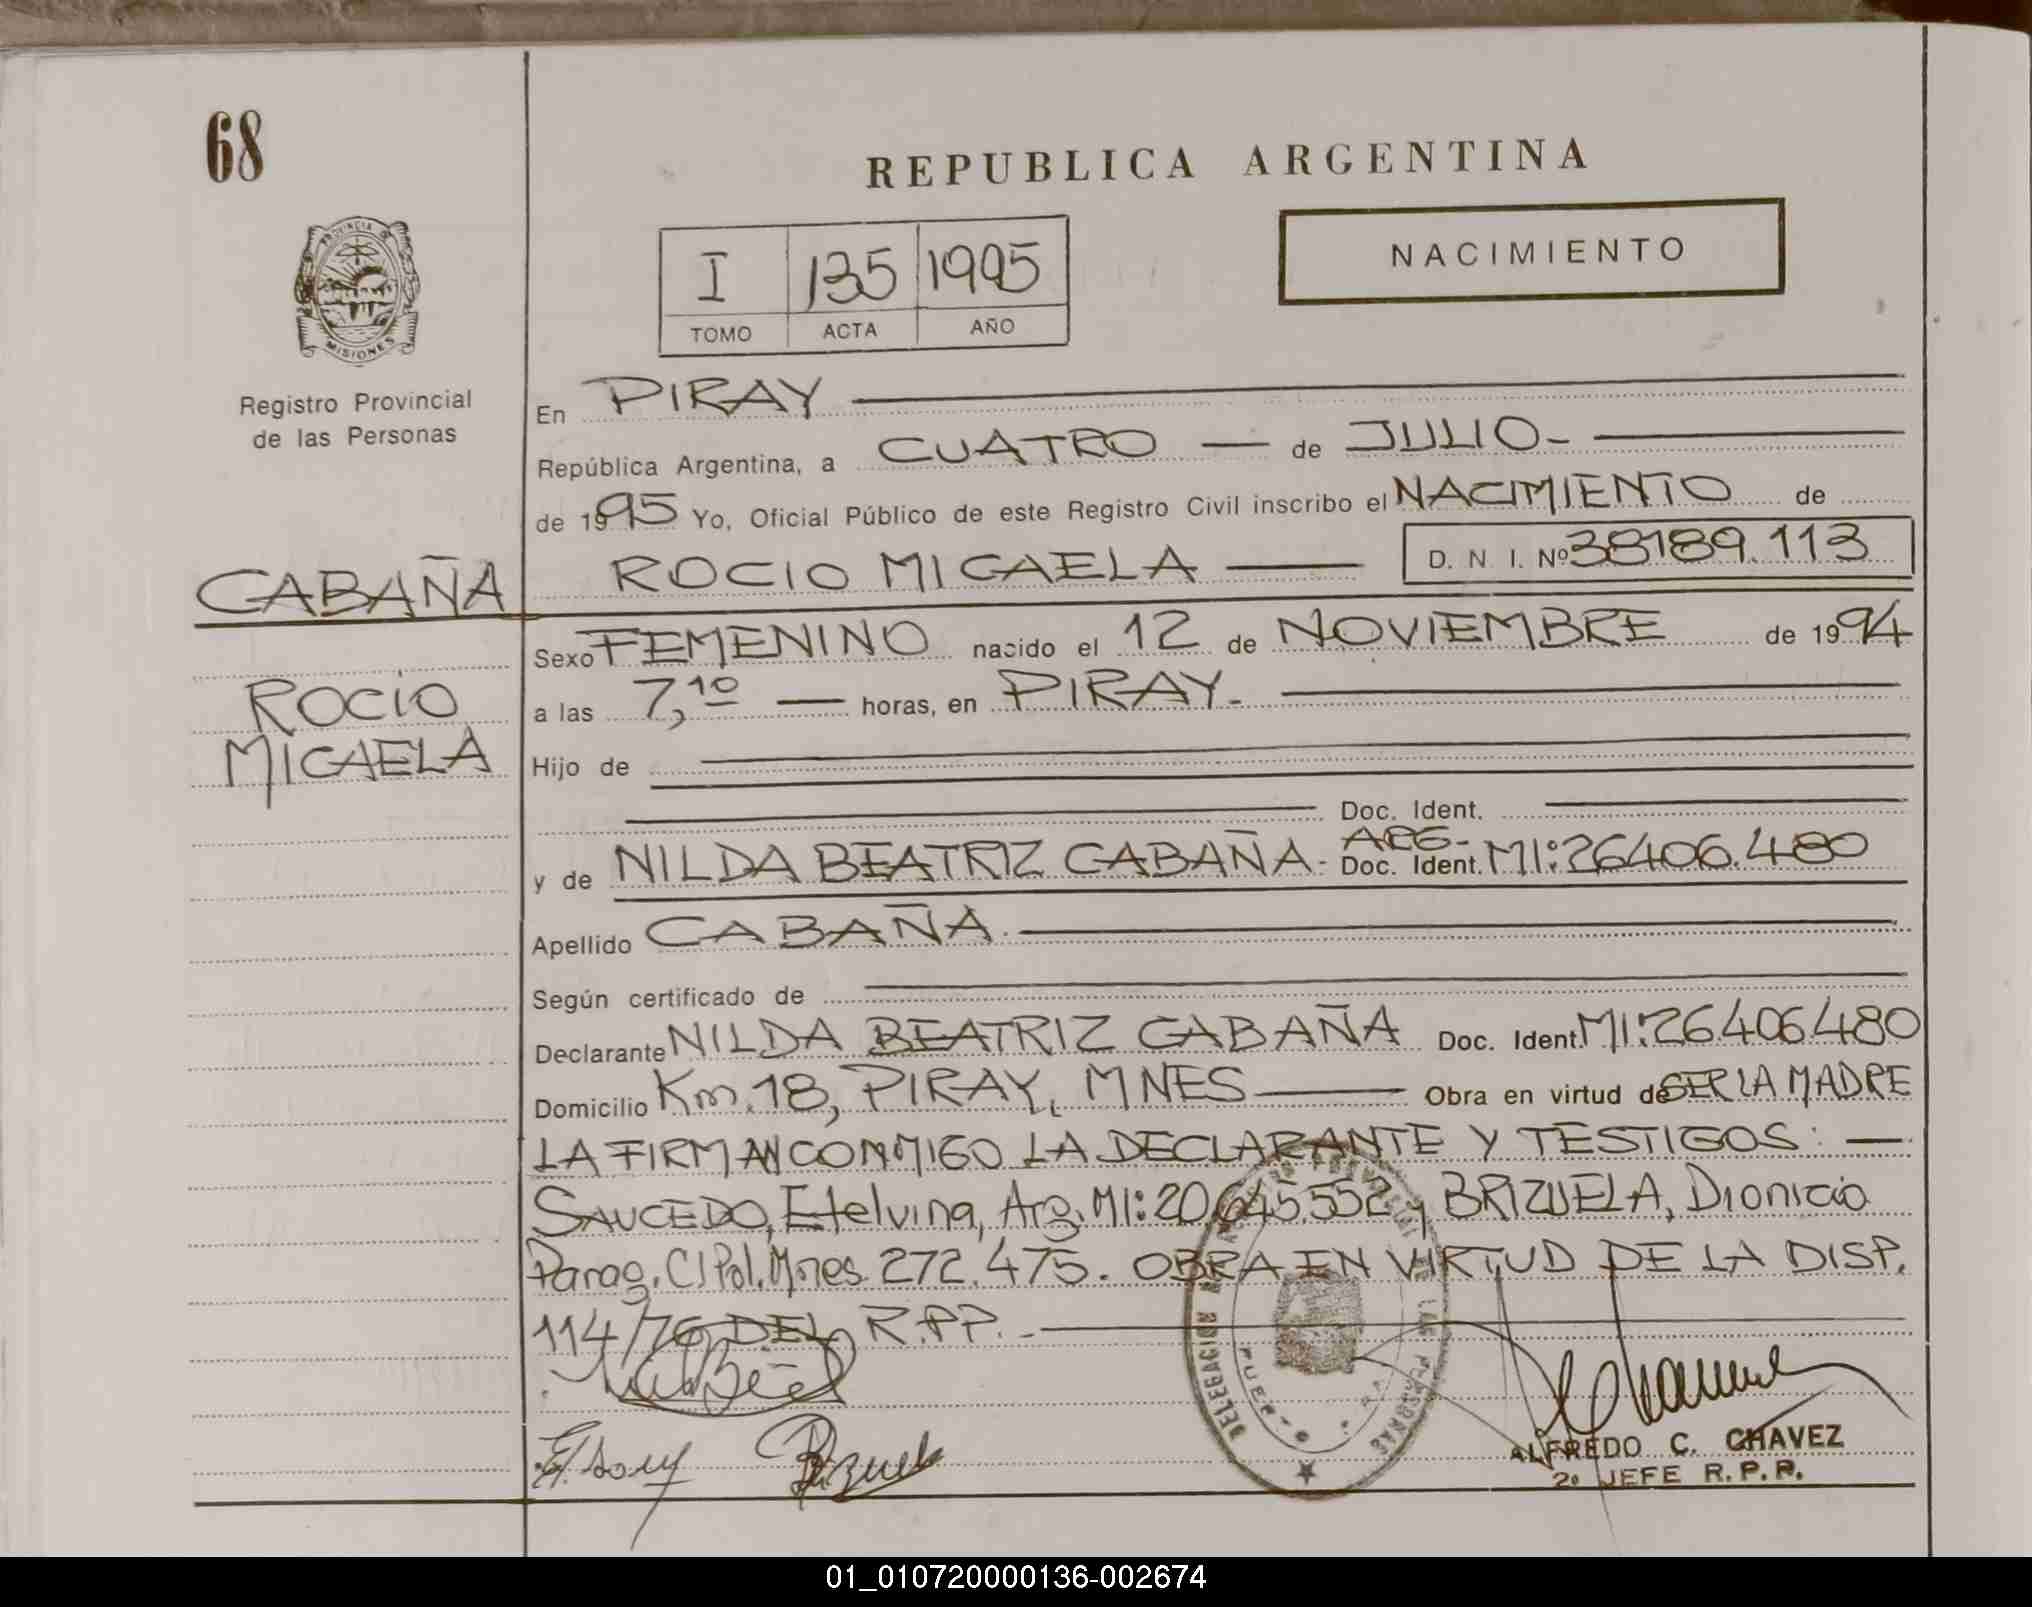 68
REPUBLICA ARGENTINA
PROVINCIA DE MISIONES
I 135 1995
TOMO ACTA AÑO
NACIMIENTO
Registro Provincial
de las Personas
En PIRAY
República Argentina, a CUATRO — de JULIO.-
de 1995 Yo, Oficial Público de este Registro Civil inscribo el NACIMIENTO de
CABAÑA
ROCIO MICAELA — D. N. I. Nº 38189.113
Sexo FEMENINO nacido el 12 de NOVIEMBRE de 1994
ROCIO
MICAELA
a las 7,10 — horas, en PIRAY.-
Hijo de
Doc. Ident.
ARG-
y de NILDA BEATRIZ CABAÑA- Doc. Ident. MI:26406.480
Apellido CABAÑA.
Según certificado de
Declarante NILDA BEATRIZ CABAÑA Doc. Ident. MI:26.406.480
Domicilio Km.18, PIRAY, MNES — Obra en virtud de SER LA MADRE
LA FIRMAN CONMIGO LA DECLARANTE Y TESTIGOS: —
SAUCEDO, Etelvina, Arg. MI: 20.645.552 y BRIZUELA, Dionicio
Parag. CI Pol. Mnes. 272.475. OBRA EN VIRTUD DE LA DISP.
114/76 DEL R.P.P.-
DELEGACION
LAS PERSONAS
PUERTO
ALFREDO C. CHAVEZ
2º JEFE R.P.P.
01_010720000136-002674